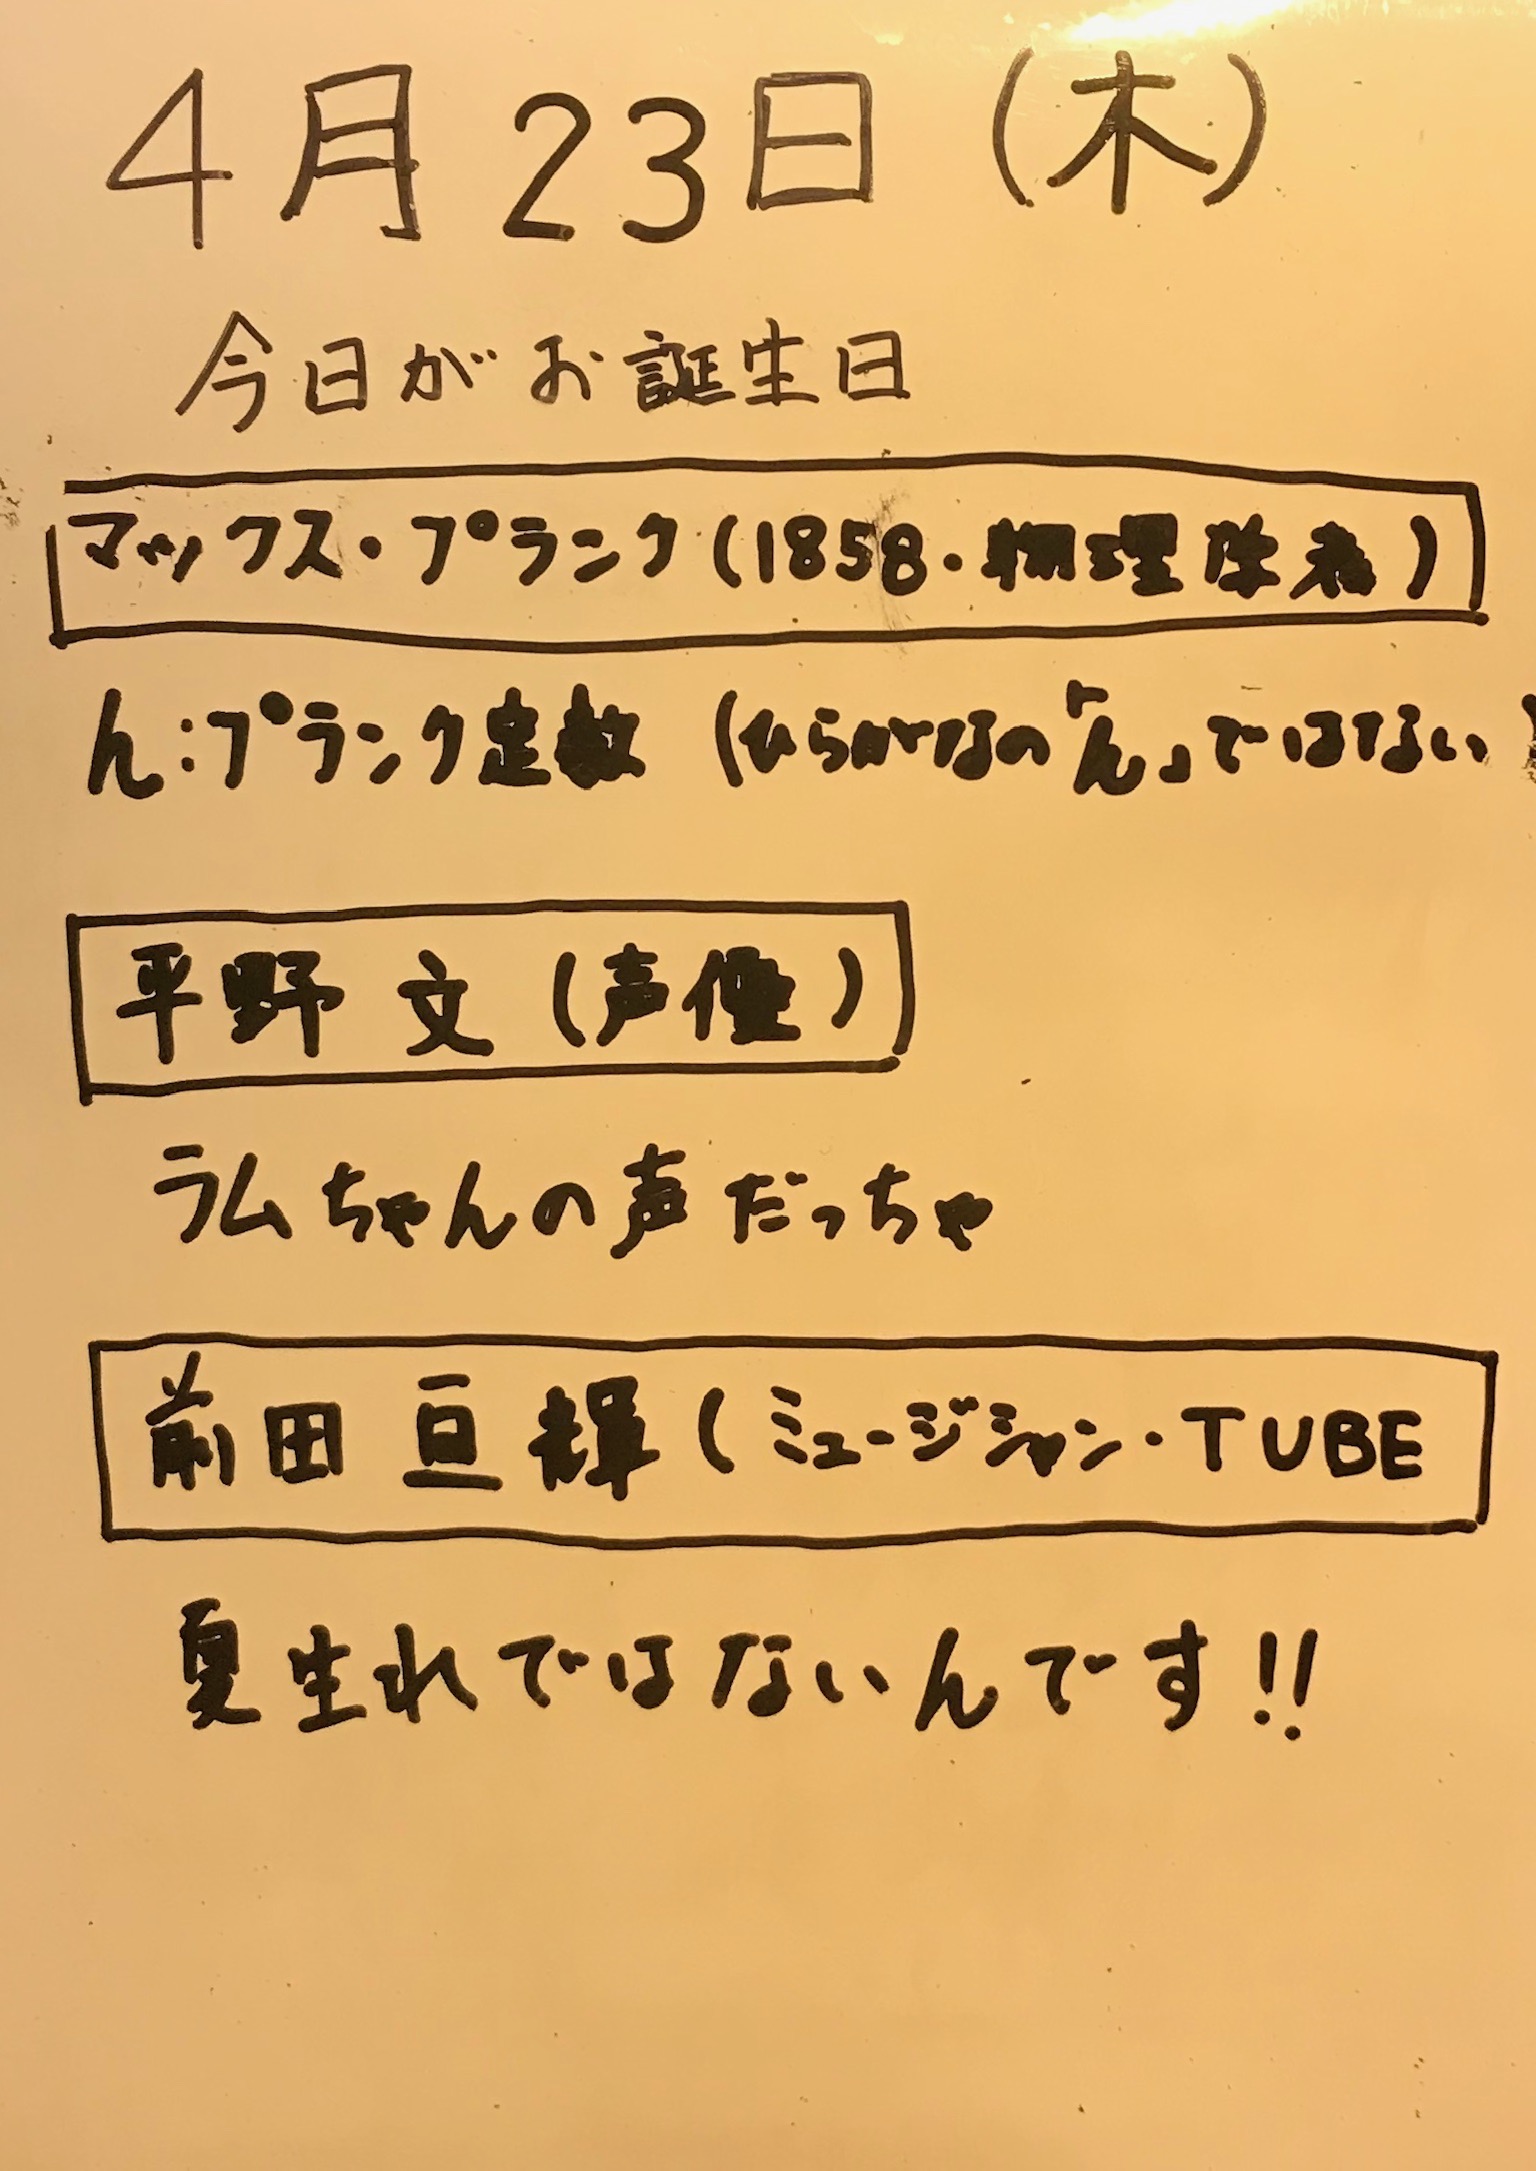 4月23日(木)
今日がお誕生日
マックス・プランク(1858・物理学者)
h:プランク定数(ひらがなの「ん」ではない)
平野 文(声優)
ラムちゃんの声だっちゃ
前田 亘輝(ミュージシャン・TUBE
夏生れではないんです!!